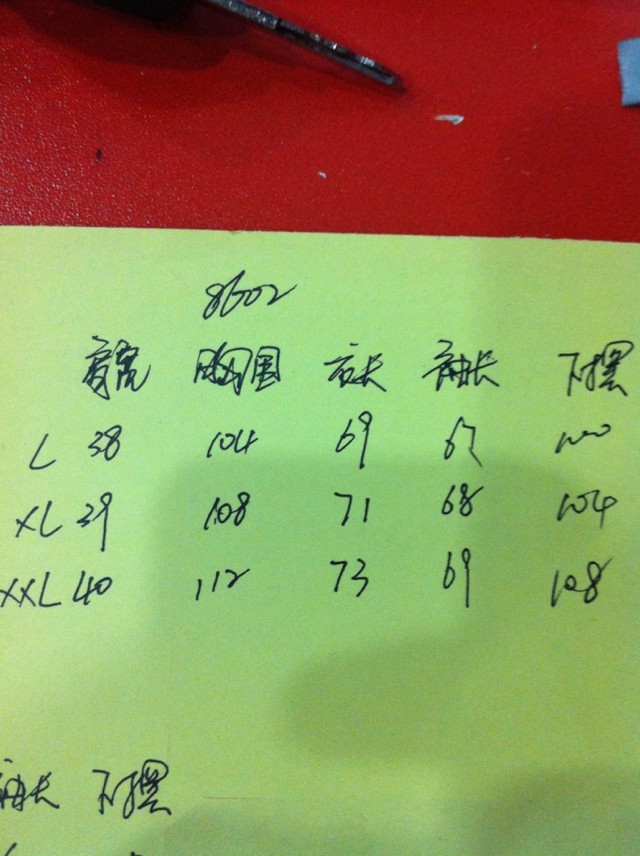 8602
肩宽 胸围 衣长 袖长 下摆
L 38 104 69 67 100
XL 39 108 71 68 104
XXL 40 112 73 69 108
袖长 下摆